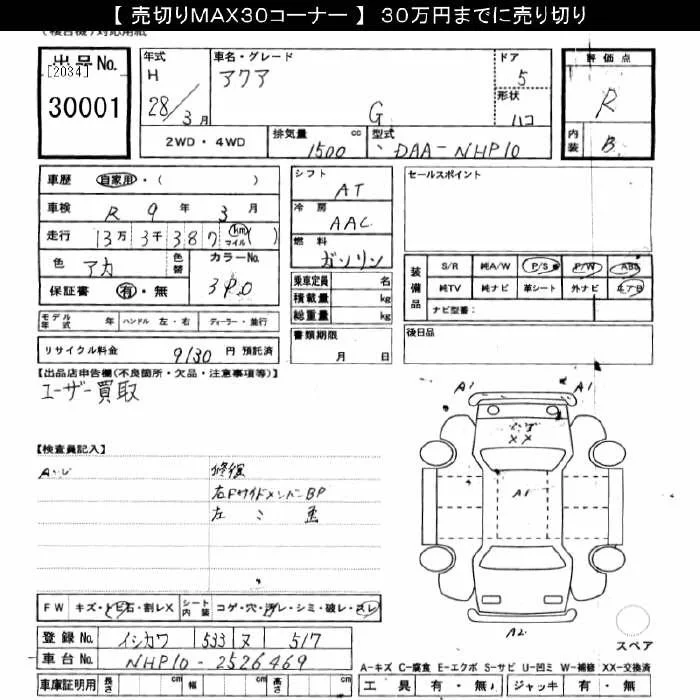 【 売切りMAX30コーナー 】 30万円までに売り切り
出品No.
[2034]
30001
年式
H
28/3月
車名・グレード
アクア
G
ドア
5
形状
ハコ
評価点
R
内装
B
2WD・4WD
排気量
1500 cc
型式
DAA-NHP10
車歴 自家用・( )
車検 R 9 年 3 月
走行 13万 3千 387 km マイル ( )
色 アカ 色替
カラーNo.
3P0
保証書 有・無
シフト
AT
冷房
AAC
燃料
ガソリン
乗車定員 名
積載量 kg
総重量 kg
書類期限
月 日
セールスポイント
装備品
S/R 純A/W P/S P/W ABS
純TV 純ナビ 革シート 外ナビ エアB
ナビ型番:
後日品
モデル年式 年 ハンドル 左・右 ディーラー・並行
リサイクル料金 9130 円 預託済
【出品店申告欄(不良箇所・欠品・注意事項等)】
ユーザー買取
【検査員記入】
修復
右FサイドメンバーBP
左 〃 歪
A1 A1
××
A1
A2
スペア
FW キズ・トビ石・割レX シート内装 コゲ・穴・汚レ・シミ・破レ・スレ
登録No. イシカワ 533 ヌ 517
車台No. NHP10-2526469
車庫証明用 長さ cm 幅 cm 高さ cm
A-キズ C-腐食 E-エクボ S-サビ U-凹ミ W-補修 XX-交換済
工具 有・無 ジャッキ 有・無